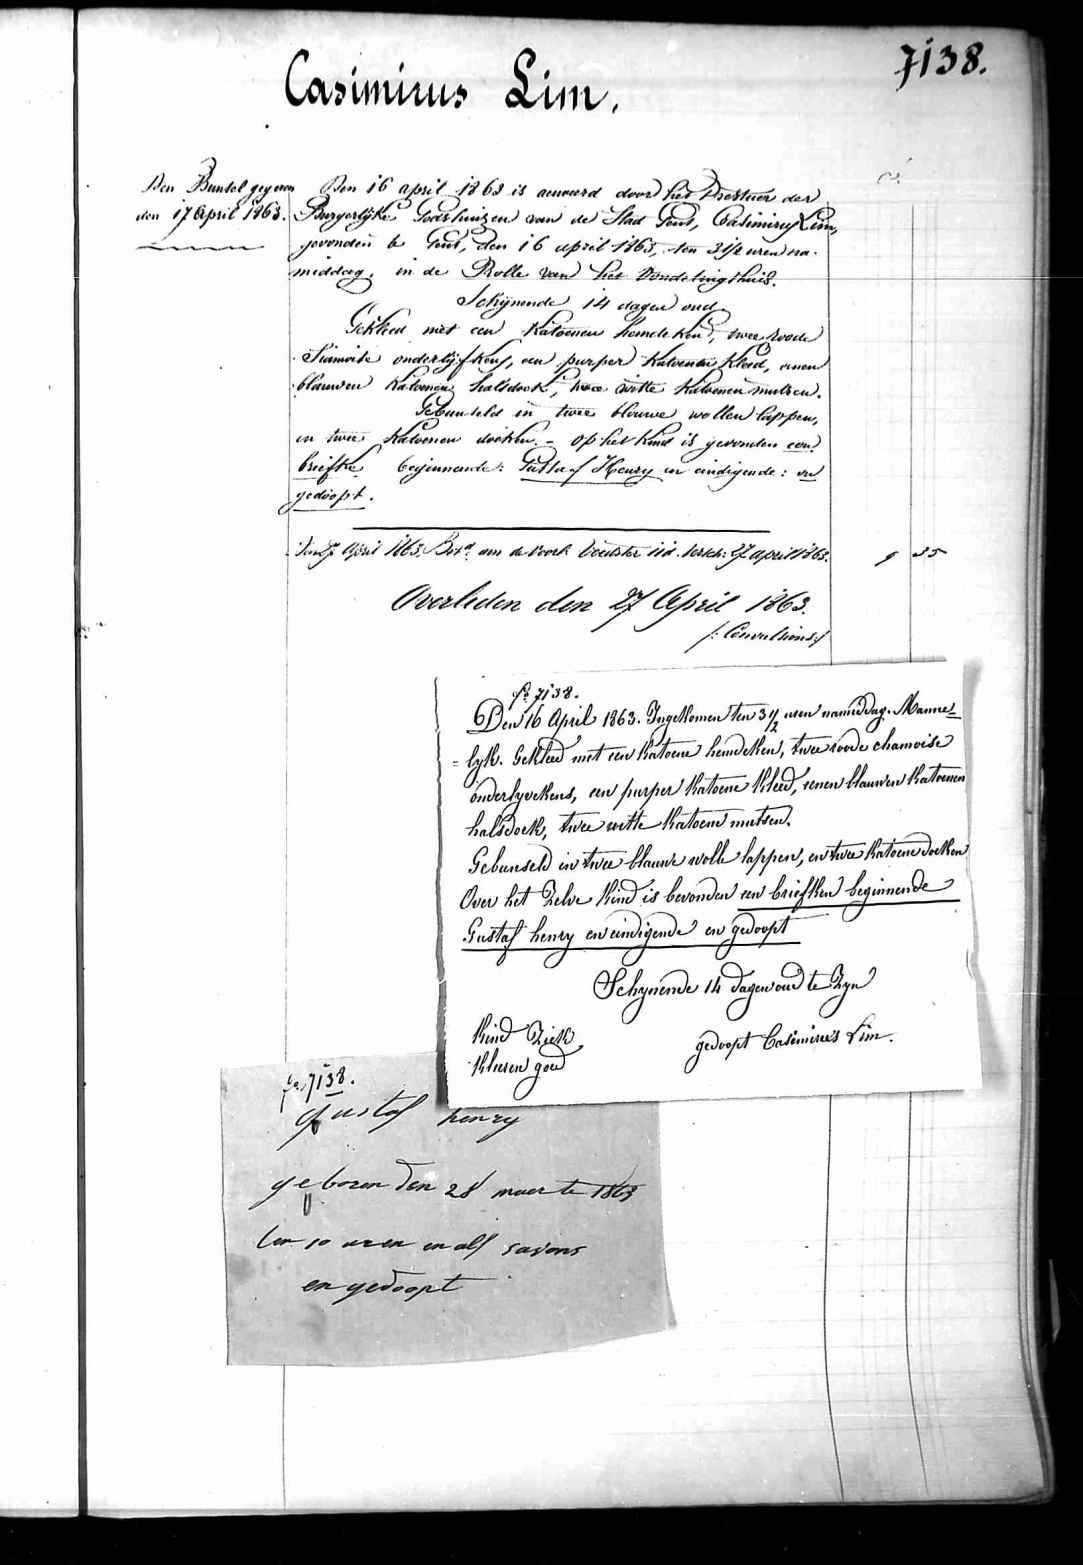 7138.
Casimirus Lim.
Den Bunsel gegeven
den 17 April 1863.
Den 16 april 1863 is aenveerd door het Bestuer der
Burgerlijke Godshuizen van de Stad Gent, Casimirus Lim,
gevonden te Gent, den 16 april 1863, ten 3 1/2 uren na-
middag, in de Rolle van het Vondelinghuis.
Schijnende 14 dagen oud.
Gekleed met een Katoenen hemdeken, twee roode
Siamoise onderlijfkens, een purper Katoenen Kleed, eenen
blauwen Katoenen halsdoek, twee witte Katoenen mutsen.
Gebunseld in twee blauwe wollen lappen,
en twee Katoenen doeken. - op het Kind is gevonden een
briefke beginnende: Gustaf Henry en eindigende: en
gedoopt.
Den 27 April 1863. 27 april 1863.
9 35
Overleden den 27 April 1863.
/: Convulsions:/
fo. 7138.
Den 16 April 1863. Ingekomen ten 3 1/2 uren namiddag. Manne-
-lyk. Gekleed met een Katoene hemdeken, twee roode chamoise
onderlyvekens, een purper Katoene Kleed, eenen blauwen Katoenen
halsdoek, twee witte Katoene mutsen.
Gebunseld in twee blauwe wolle lappen, en twee Katoene doeken
Over het Zelve Kind is bevonden een briefken beginnende
Gustaf henry en eindigende en gedoopt
Schynende 14 dagen oud te Zyn
Kind Ziek
Kleeren goed
gedoopt Casimirus Lim.
fo. 7138.
gustaf henry
geboren den 28 maerte 1863
ten 10 uren en alf savons
en gedoopt